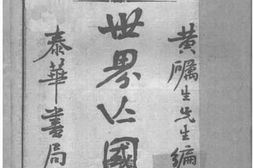 黃厲生先生編
世界亡國
泰華書局